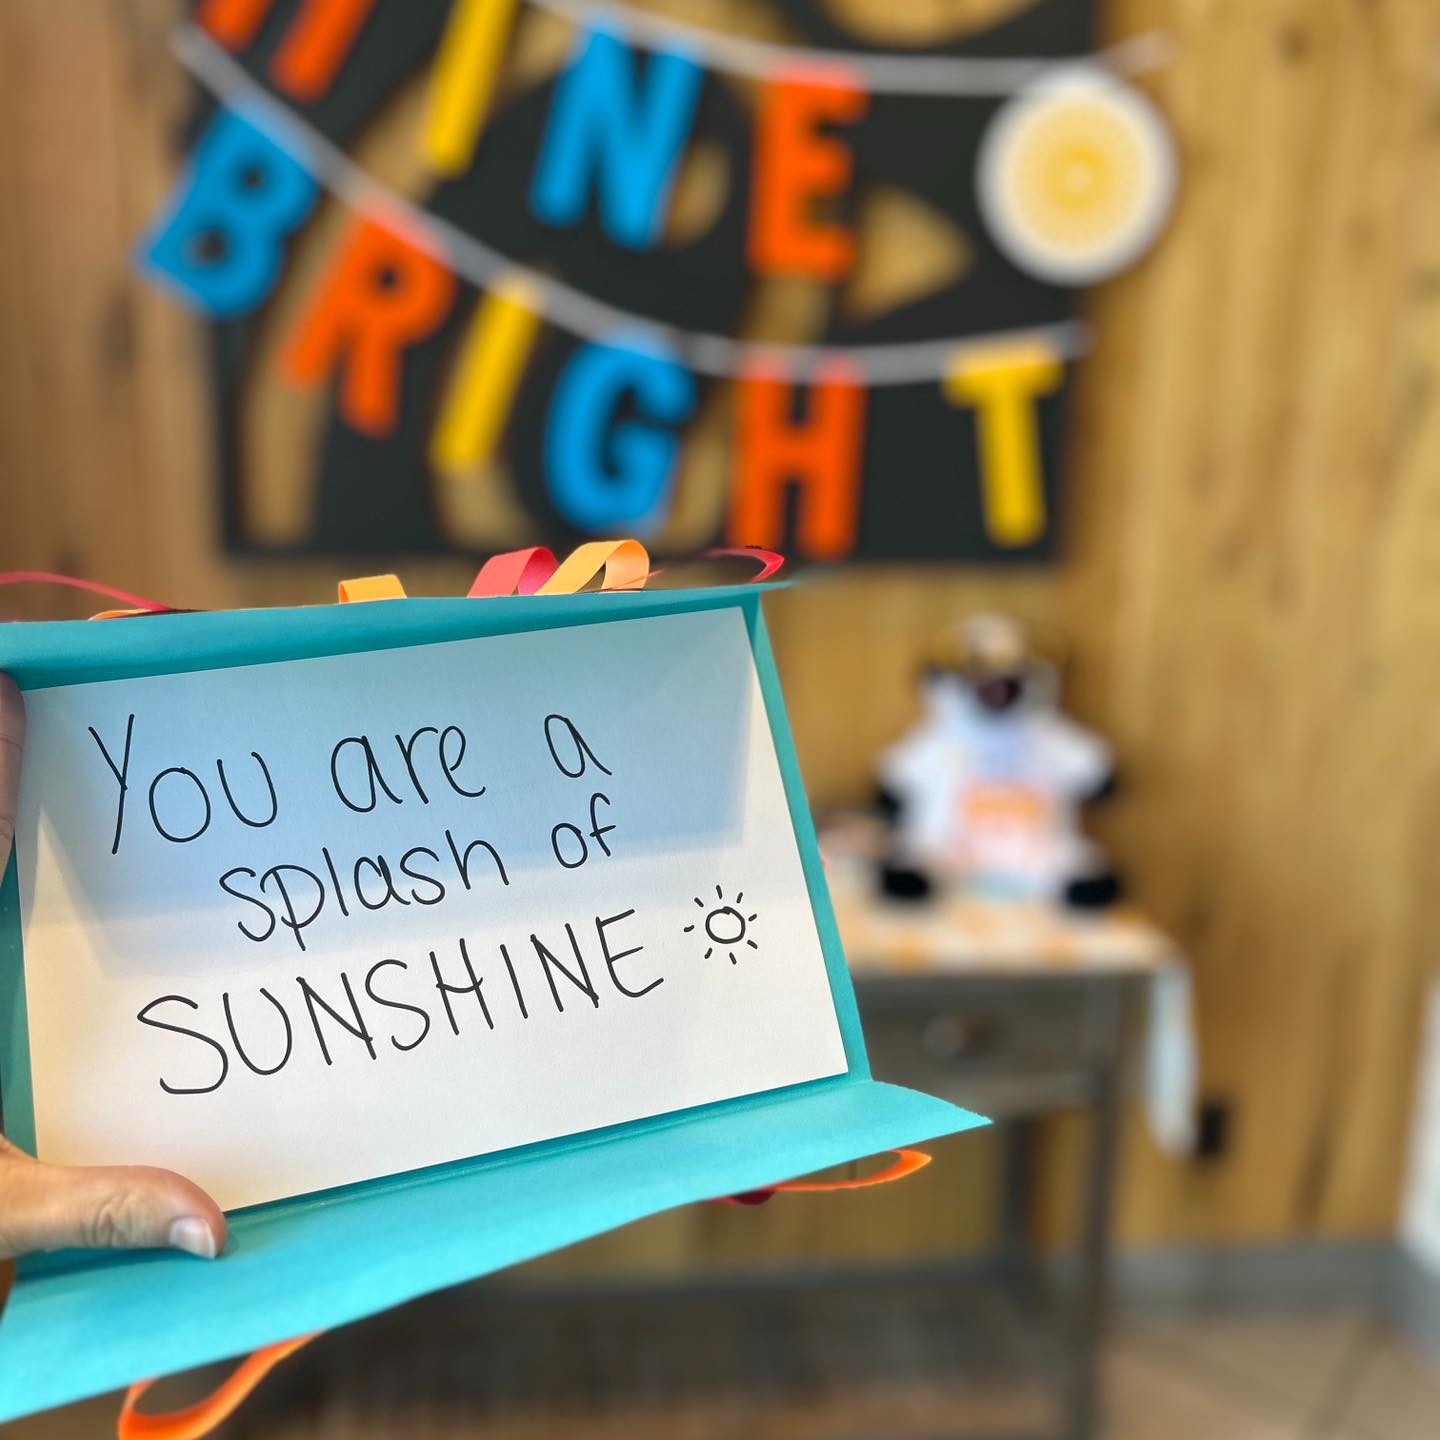 HINE
BRIGHT
You are a
splash of
SUNSHINE